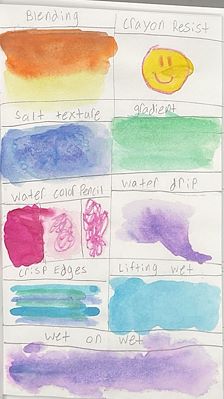 Blending
Crayon Resist
Salt texture
gradient
Water color Pencil
Water drip
Crisp Edges
Lifting wet
Wet on Wet